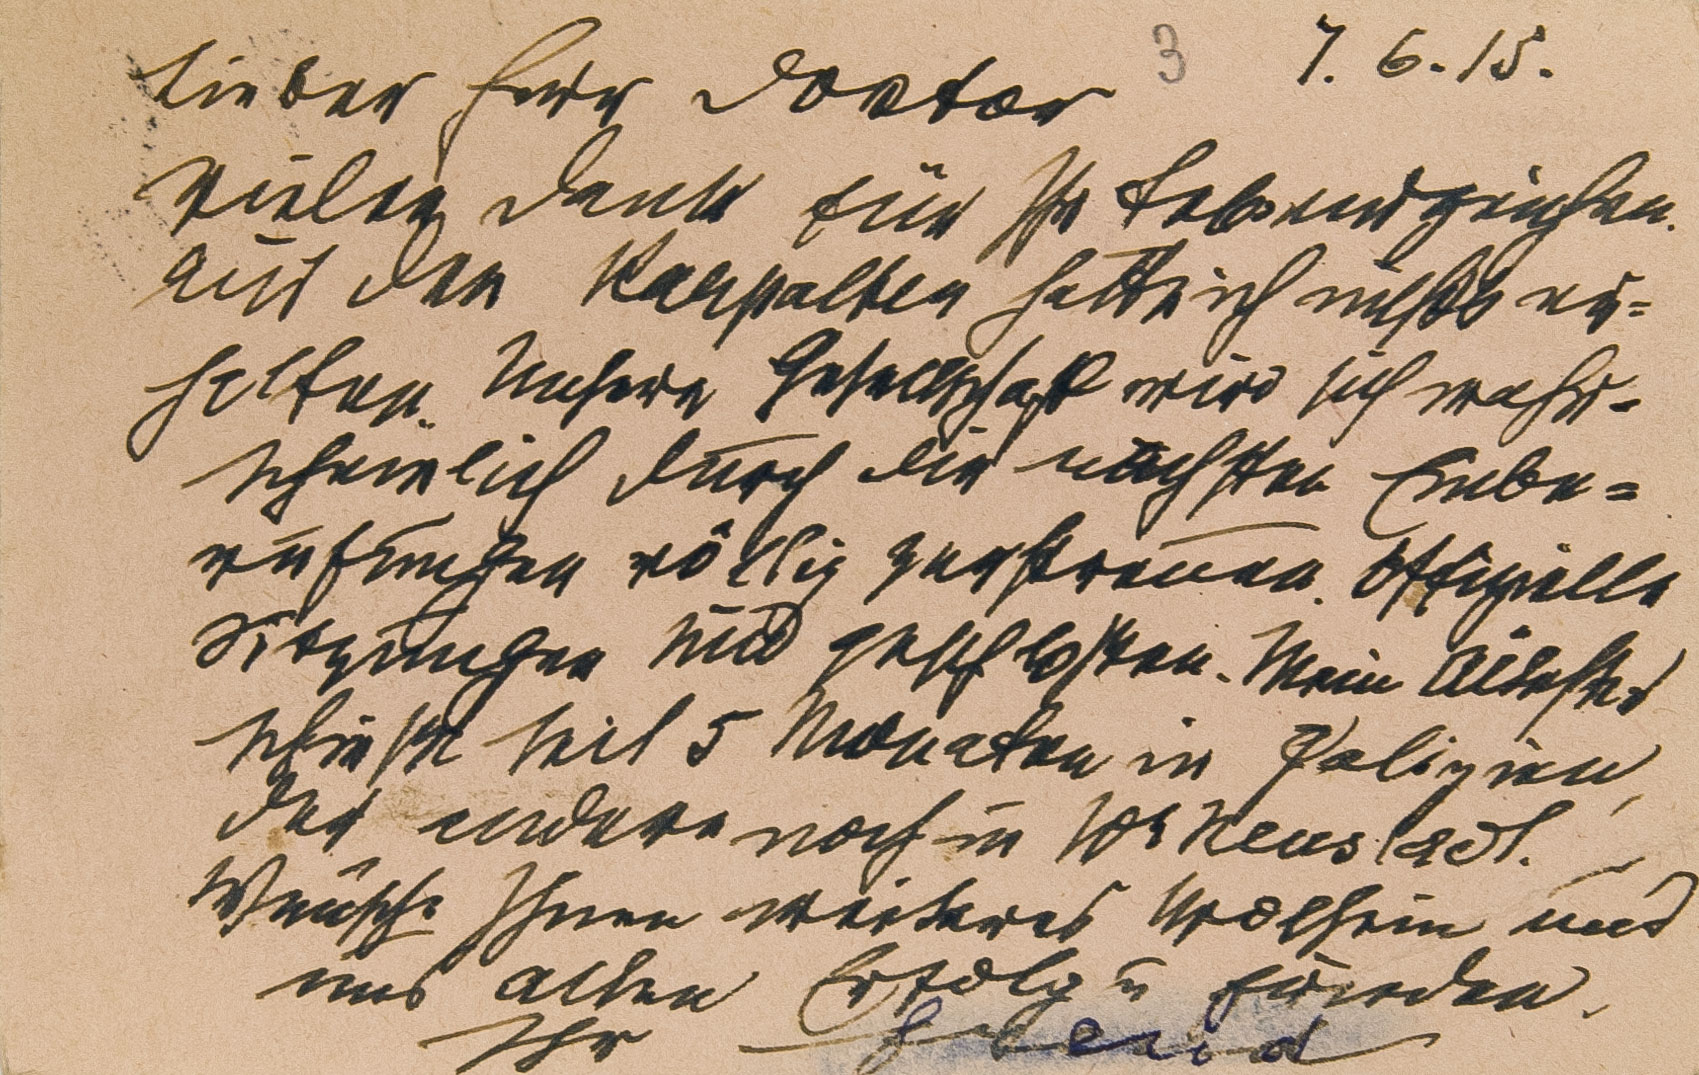 3 7. 6. 15.
Lieber Herr Doctor
Vielen Dank für Ihr Lebenszeichen.
Aus den Karpathen hatte ich nichts er=
halten. Unsere Gesellschaft wird sich wahr=
scheinlich durch die nächsten Einbe=
rufungen völlig zerstreuen. Offizielle
Sitzungen sind geschlossen. Mein Ältester
schießt seit 5 Monaten in Galizien,
der andere noch in Wr Neustadt.
Wünsche Ihnen weiteres Wohlsein und
uns allen Erfolg u Frieden.
Ihr Freud